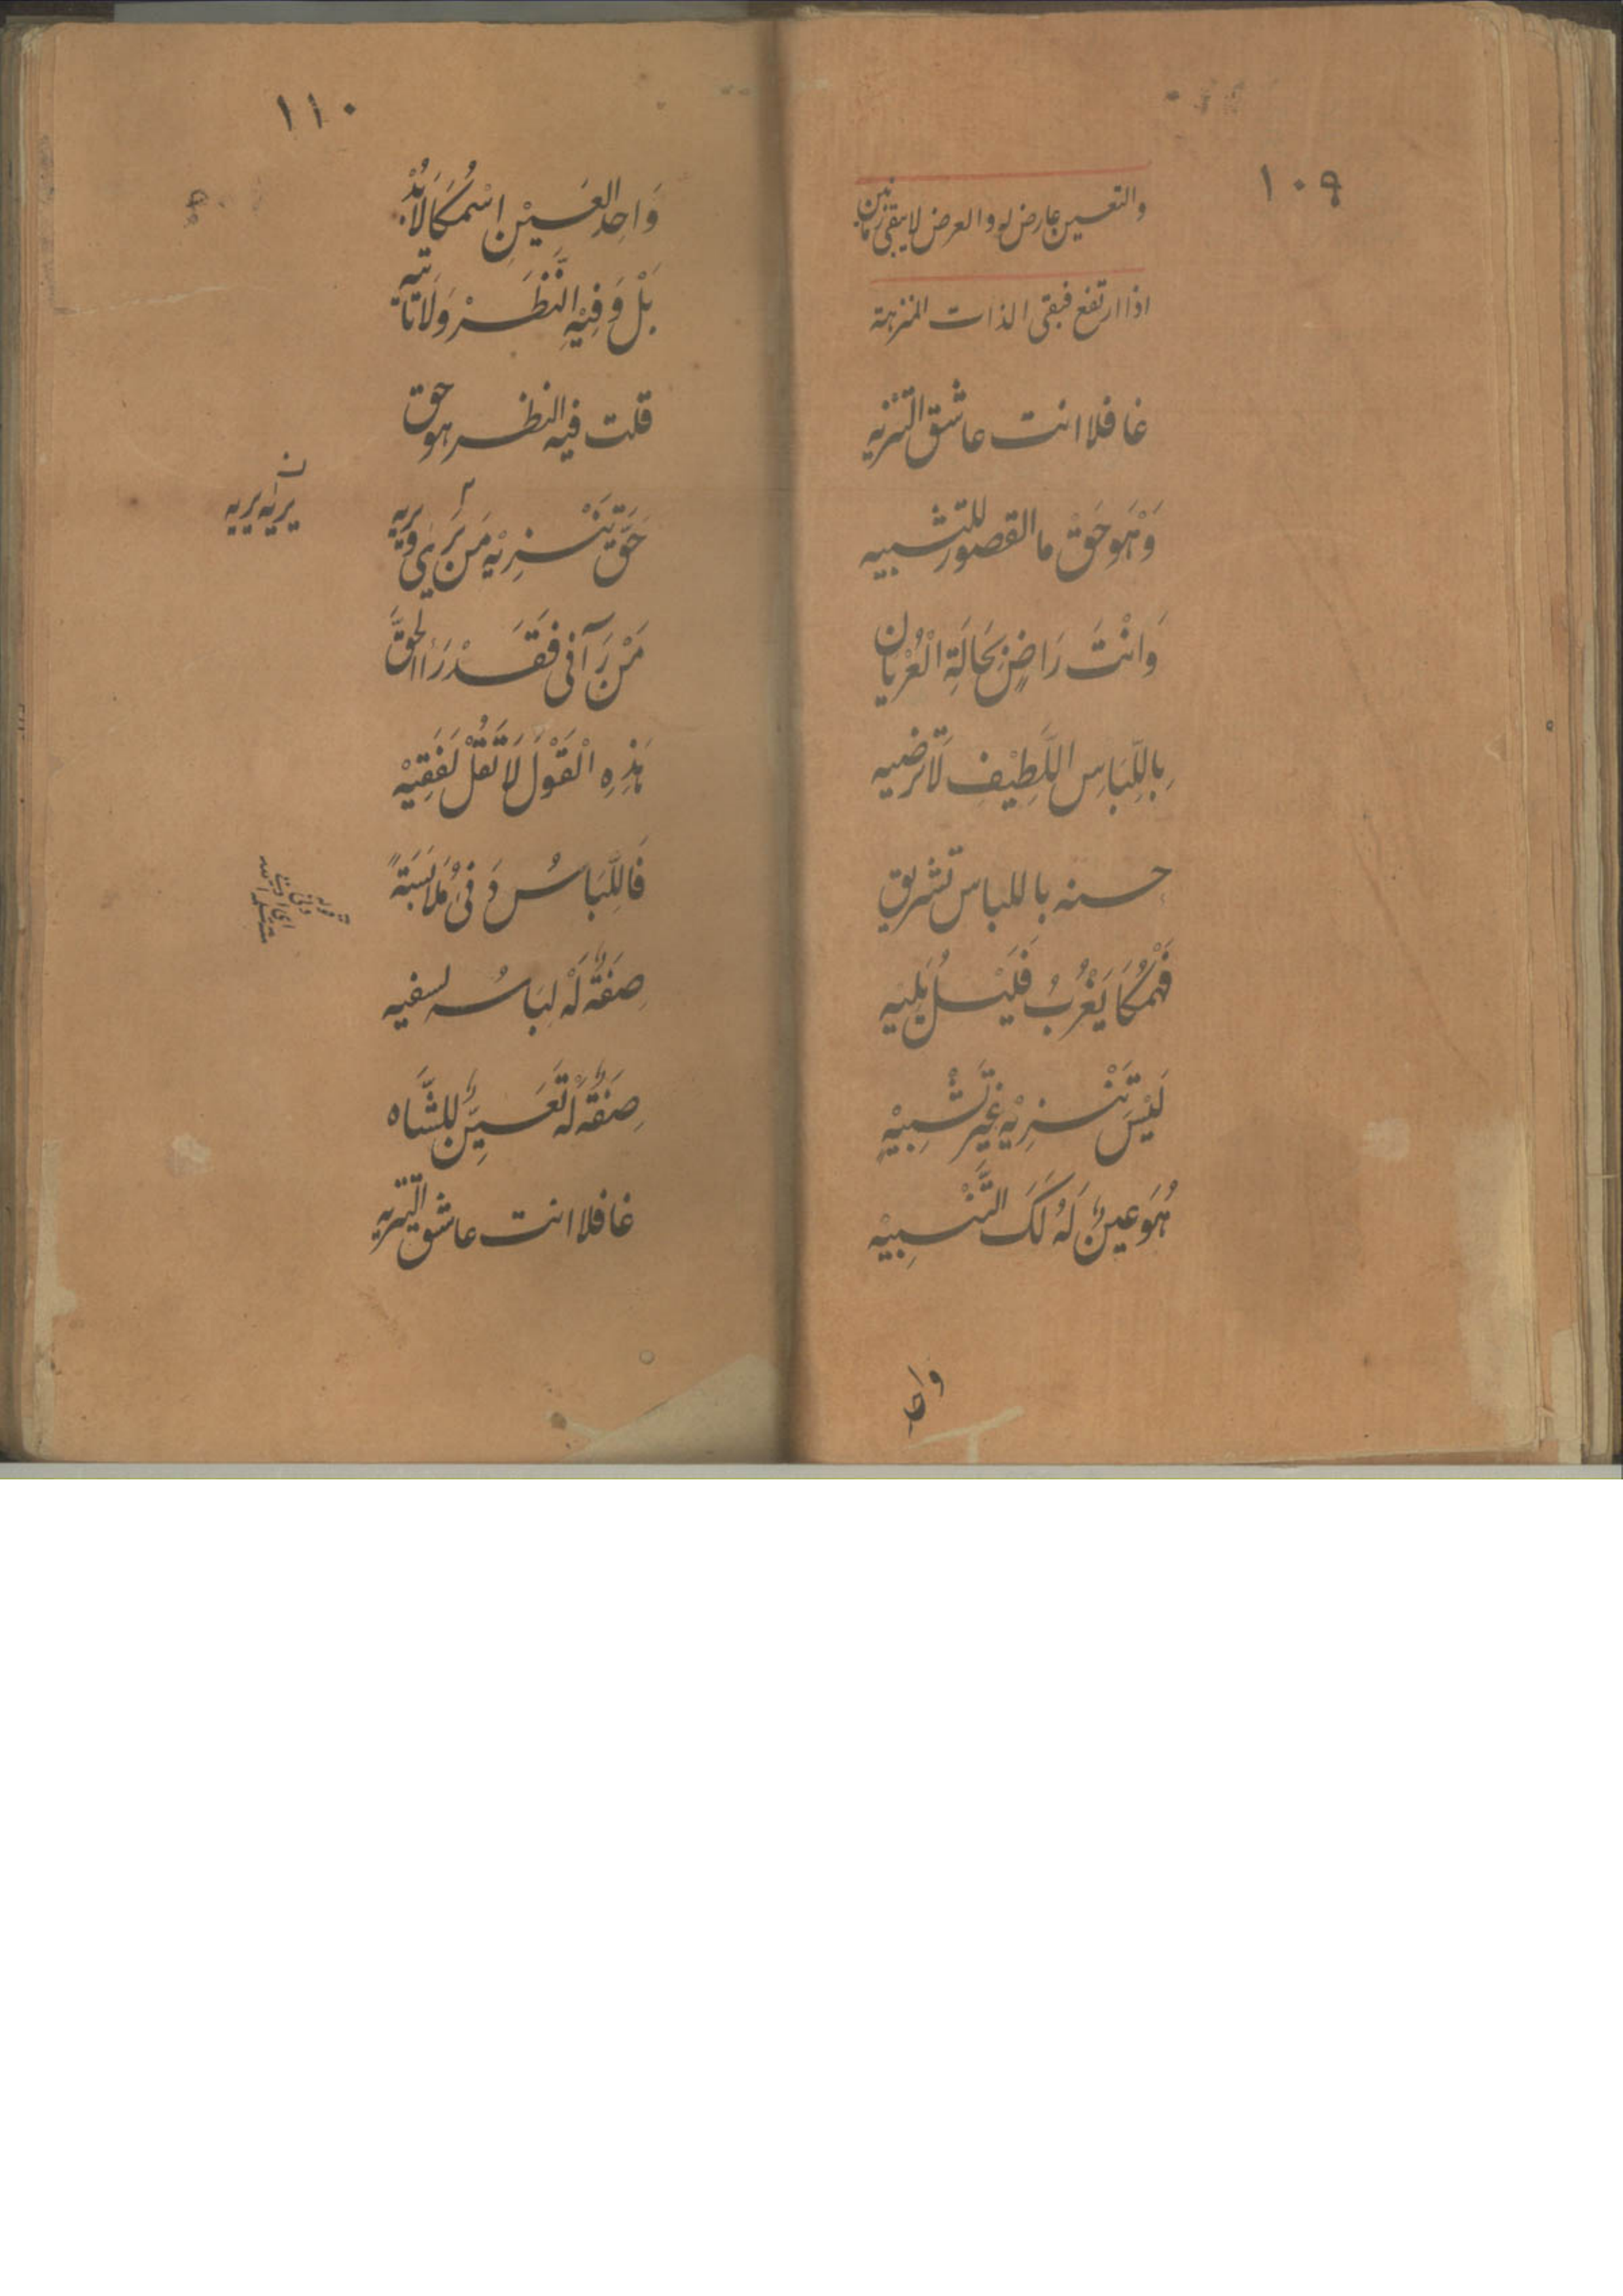 ١٠٩
والتعين عارض له والعرض لا يبقى زمانين
اذا ارتفع فبقى الذات المنزهة
غافلا انت عاشق التنزيه
وَهُوَ حَقْ ما القصور للتشبيه
وَانْتَ رَاضٍ بِحَالَةِ الْعُرْيَان
بِاللِّبَاسِ اللَّطِيْفِ لَا تَرضيه
حسنه باللباس تشريق
يَغْرُبُ فَلَيْسَ يَلِيَه
لَيْسَ تَنْزِيْه غَيْرِ تَشْبِيْهِ
هُوَ عين لَهُ لَكَ التَّنْبِيْه
واح
١١٠
وَاحِد العَيْنِ اسْمُكَا لَا بُدْ
بَلْ وَفِيْهِ النَّظَرْ وَلَا تَأتيه
قلت فيه النظر هو حق
حَقَّ تَنْزِيْه مَن يَرَىٰ وَيريه
يرىٰه يريه
مَنْ رَآنى فَقَدْ رَاالحَقَّ
هٰذِهِ الْقَوْلَ لَا تَقُلْ لَفَقِيْه
فَاللِّبَاسُ وَفىْ مُلَابَسَةً
صِفَةٌ لَهْ لِبَاسُه لسفيه
صِفَةٌ لَهْ تَعَيِّنٌ لِلشَّاه
غافلا انت عاشق التنزيه